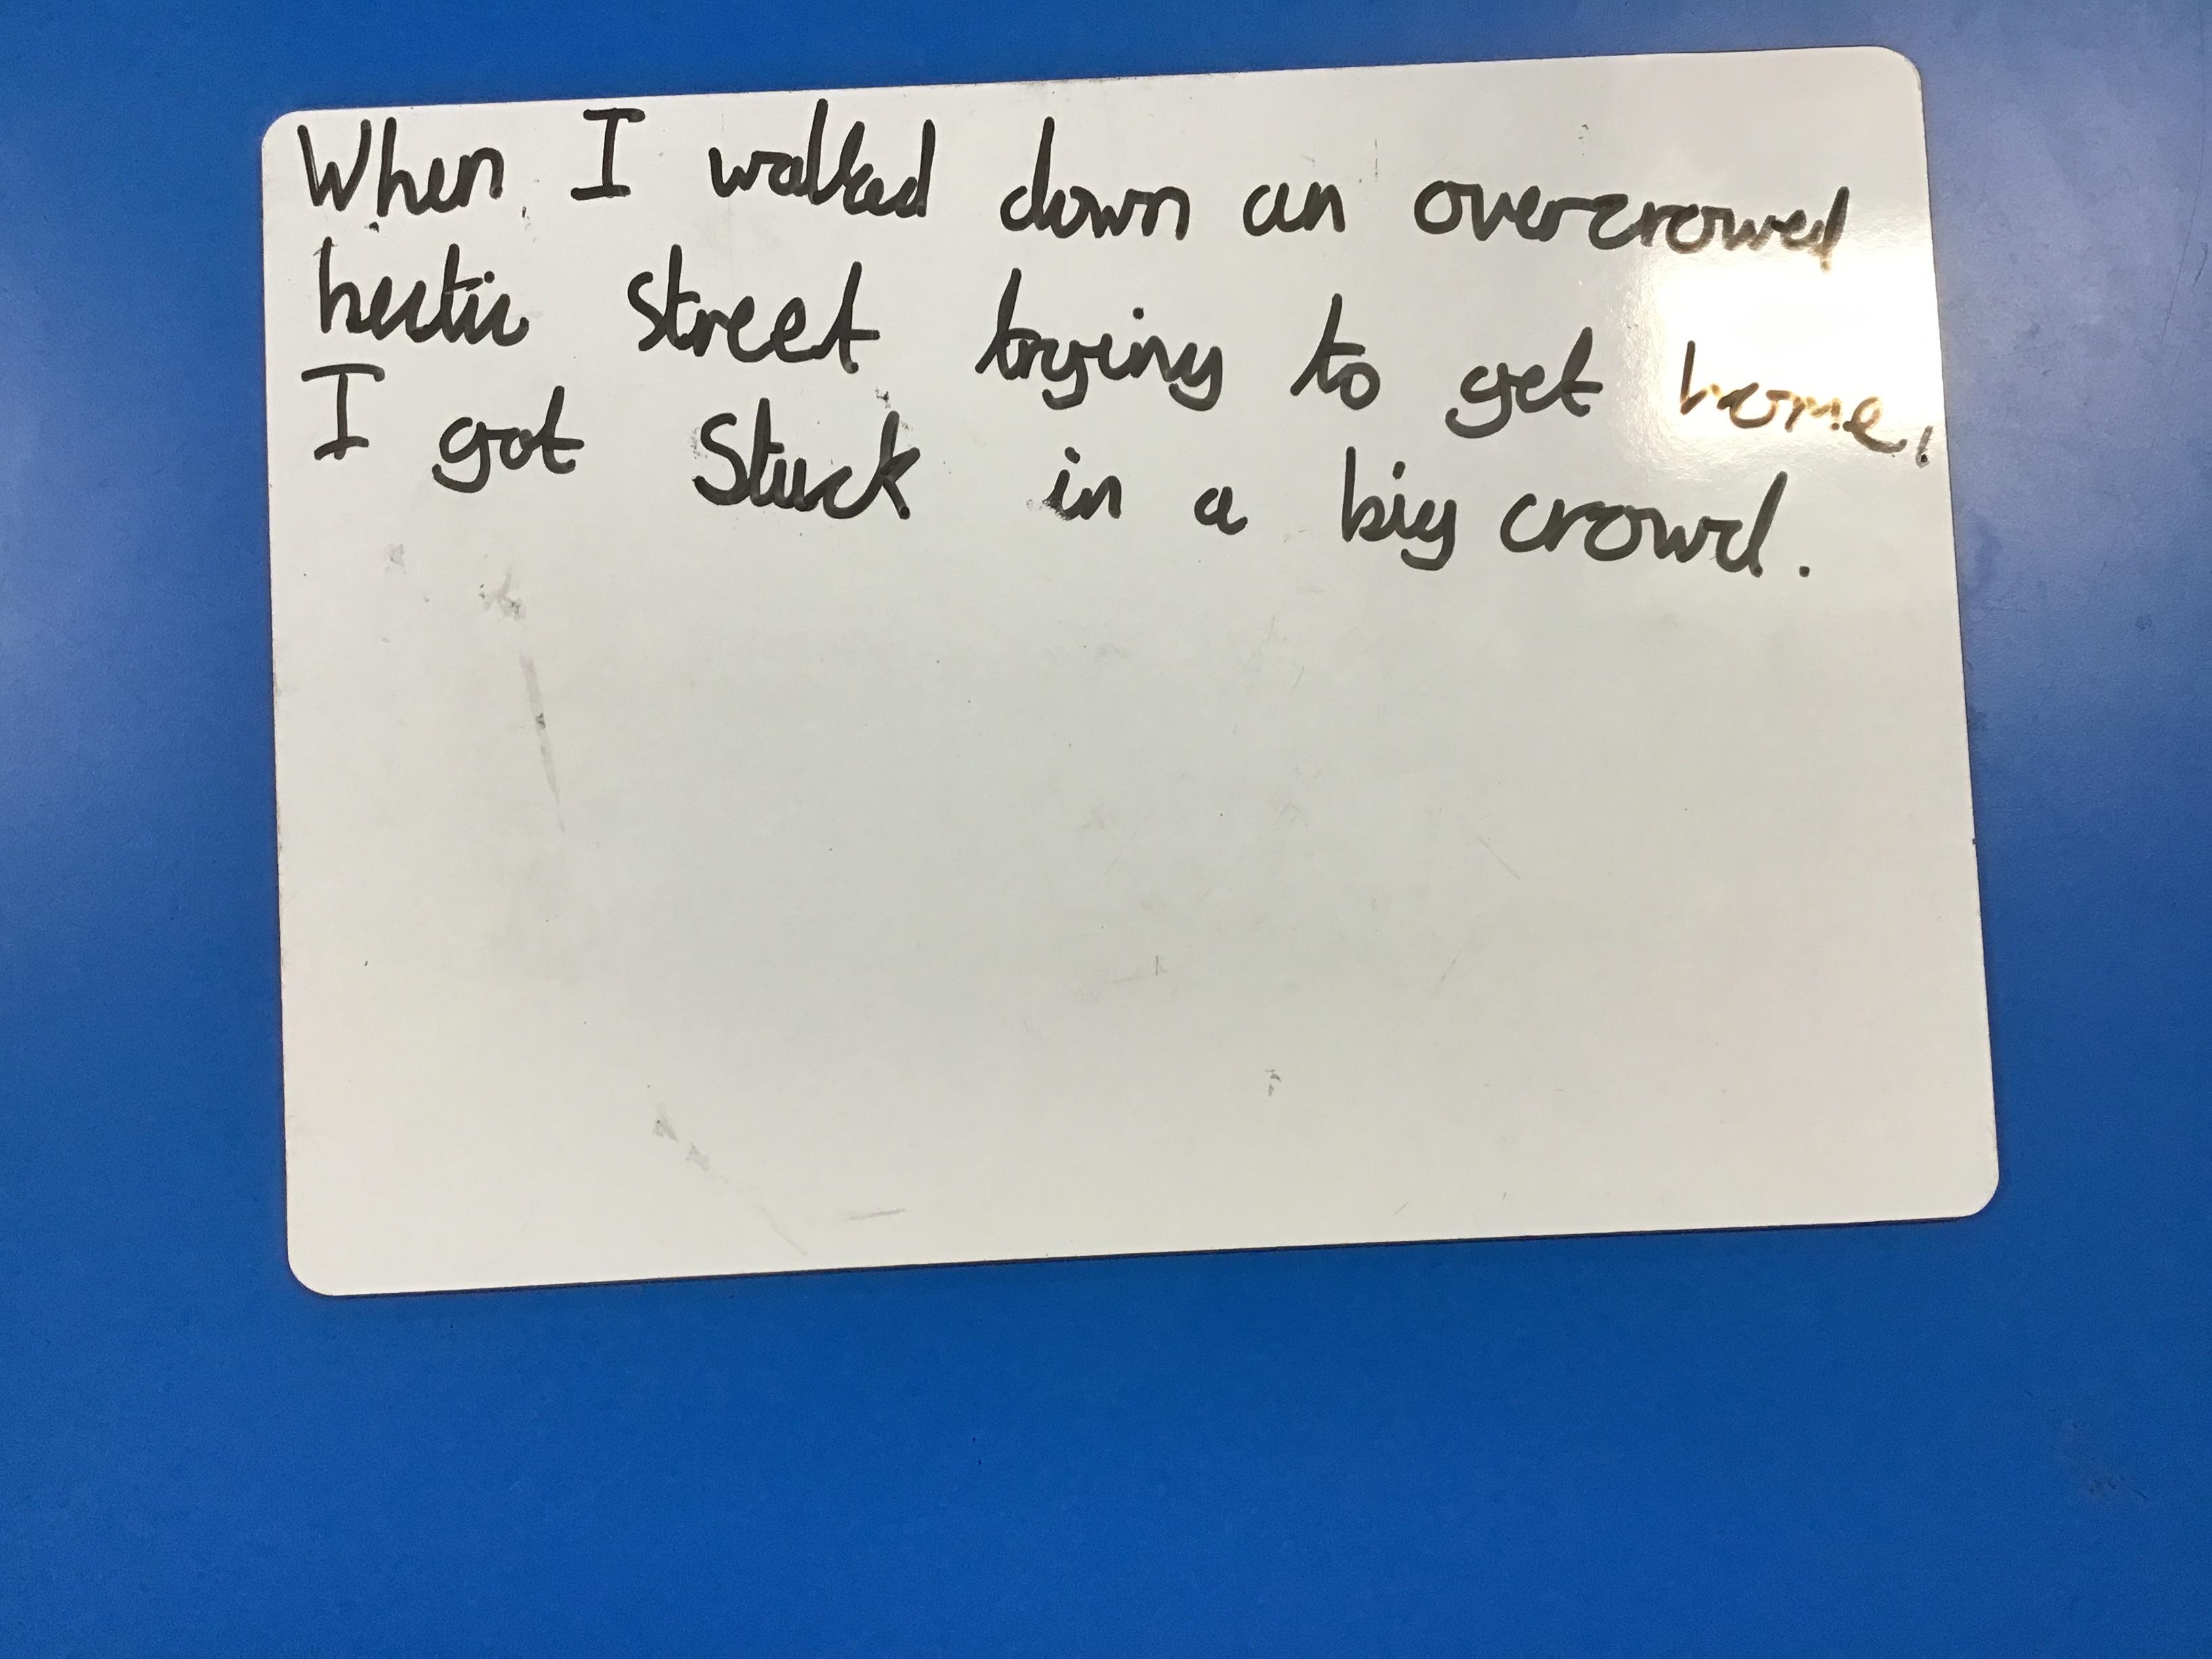 When I walked down an overcrowed
hectic street trying to get home,
I got Stuck in a big crowd.